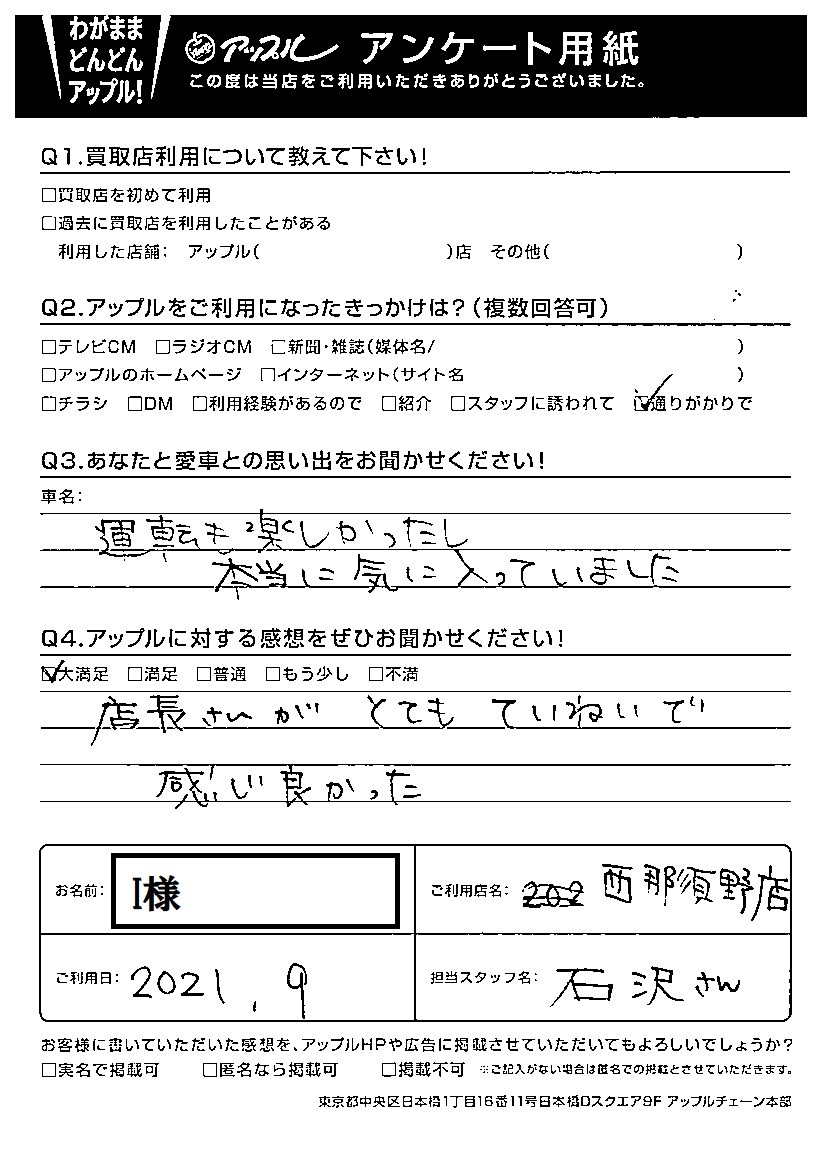 わがまま
どんどん
アップル!
アップル アンケート用紙
この度は当店をご利用いただきありがとうございました。
Q1.買取店利用について教えて下さい!
□買取店を初めて利用
□過去に買取店を利用したことがある
利用した店舗: アップル( )店 その他( )
Q2.アップルをご利用になったきっかけは?(複数回答可)
□テレビCM □ラジオCM □新聞・雑誌(媒体名/ )
□アップルのホームページ □インターネット(サイト名 )
□チラシ □DM □利用経験があるので □紹介 □スタッフに誘われて ☑通りがかりで
Q3.あなたと愛車との思い出をお聞かせください!
車名:
運転も楽しかったし
本当に気に入っていました
Q4.アップルに対する感想をぜひお聞かせください!
☑大満足 □満足 □普通 □もう少し □不満
店長さんが とても ていねいで
感じ良かった
お名前: I様
ご利用店名: 西那須野店
ご利用日: 2021.9
担当スタッフ名: 石沢さん
お客様に書いていただいた感想を、アップルHPや広告に掲載させていただいてもよろしいでしょうか?
□実名で掲載可 □匿名なら掲載可 □掲載不可 ※ご記入がない場合は匿名での掲載とさせていただきます。
東京都中央区日本橋1丁目16番11号日本橋Dスクエア9F アップルチェーン本部